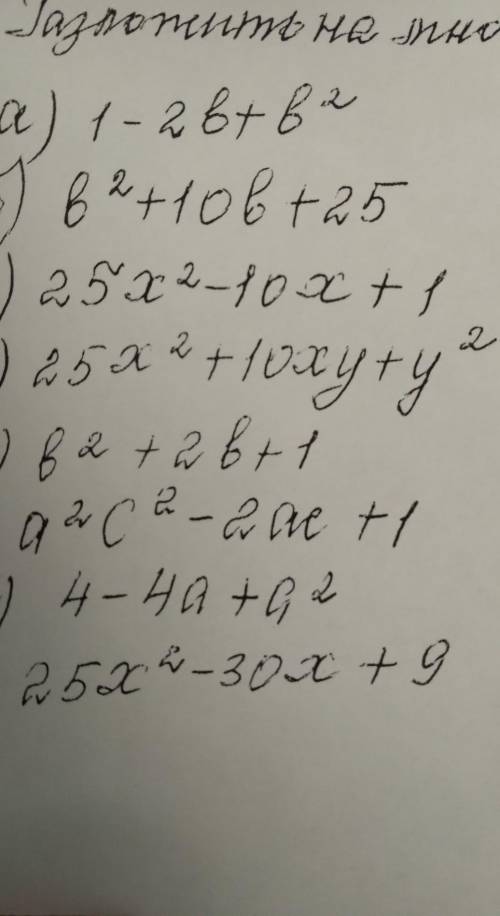 Разложить на мно
а) 1 - 2в + в²
) в² + 10в + 25
) 25x² - 10x + 1
) 25x² + 10xy + y²
) в² + 2в + 1
a²c² - 2ac + 1
) 4 - 4a + a²
25x² - 30x + 9